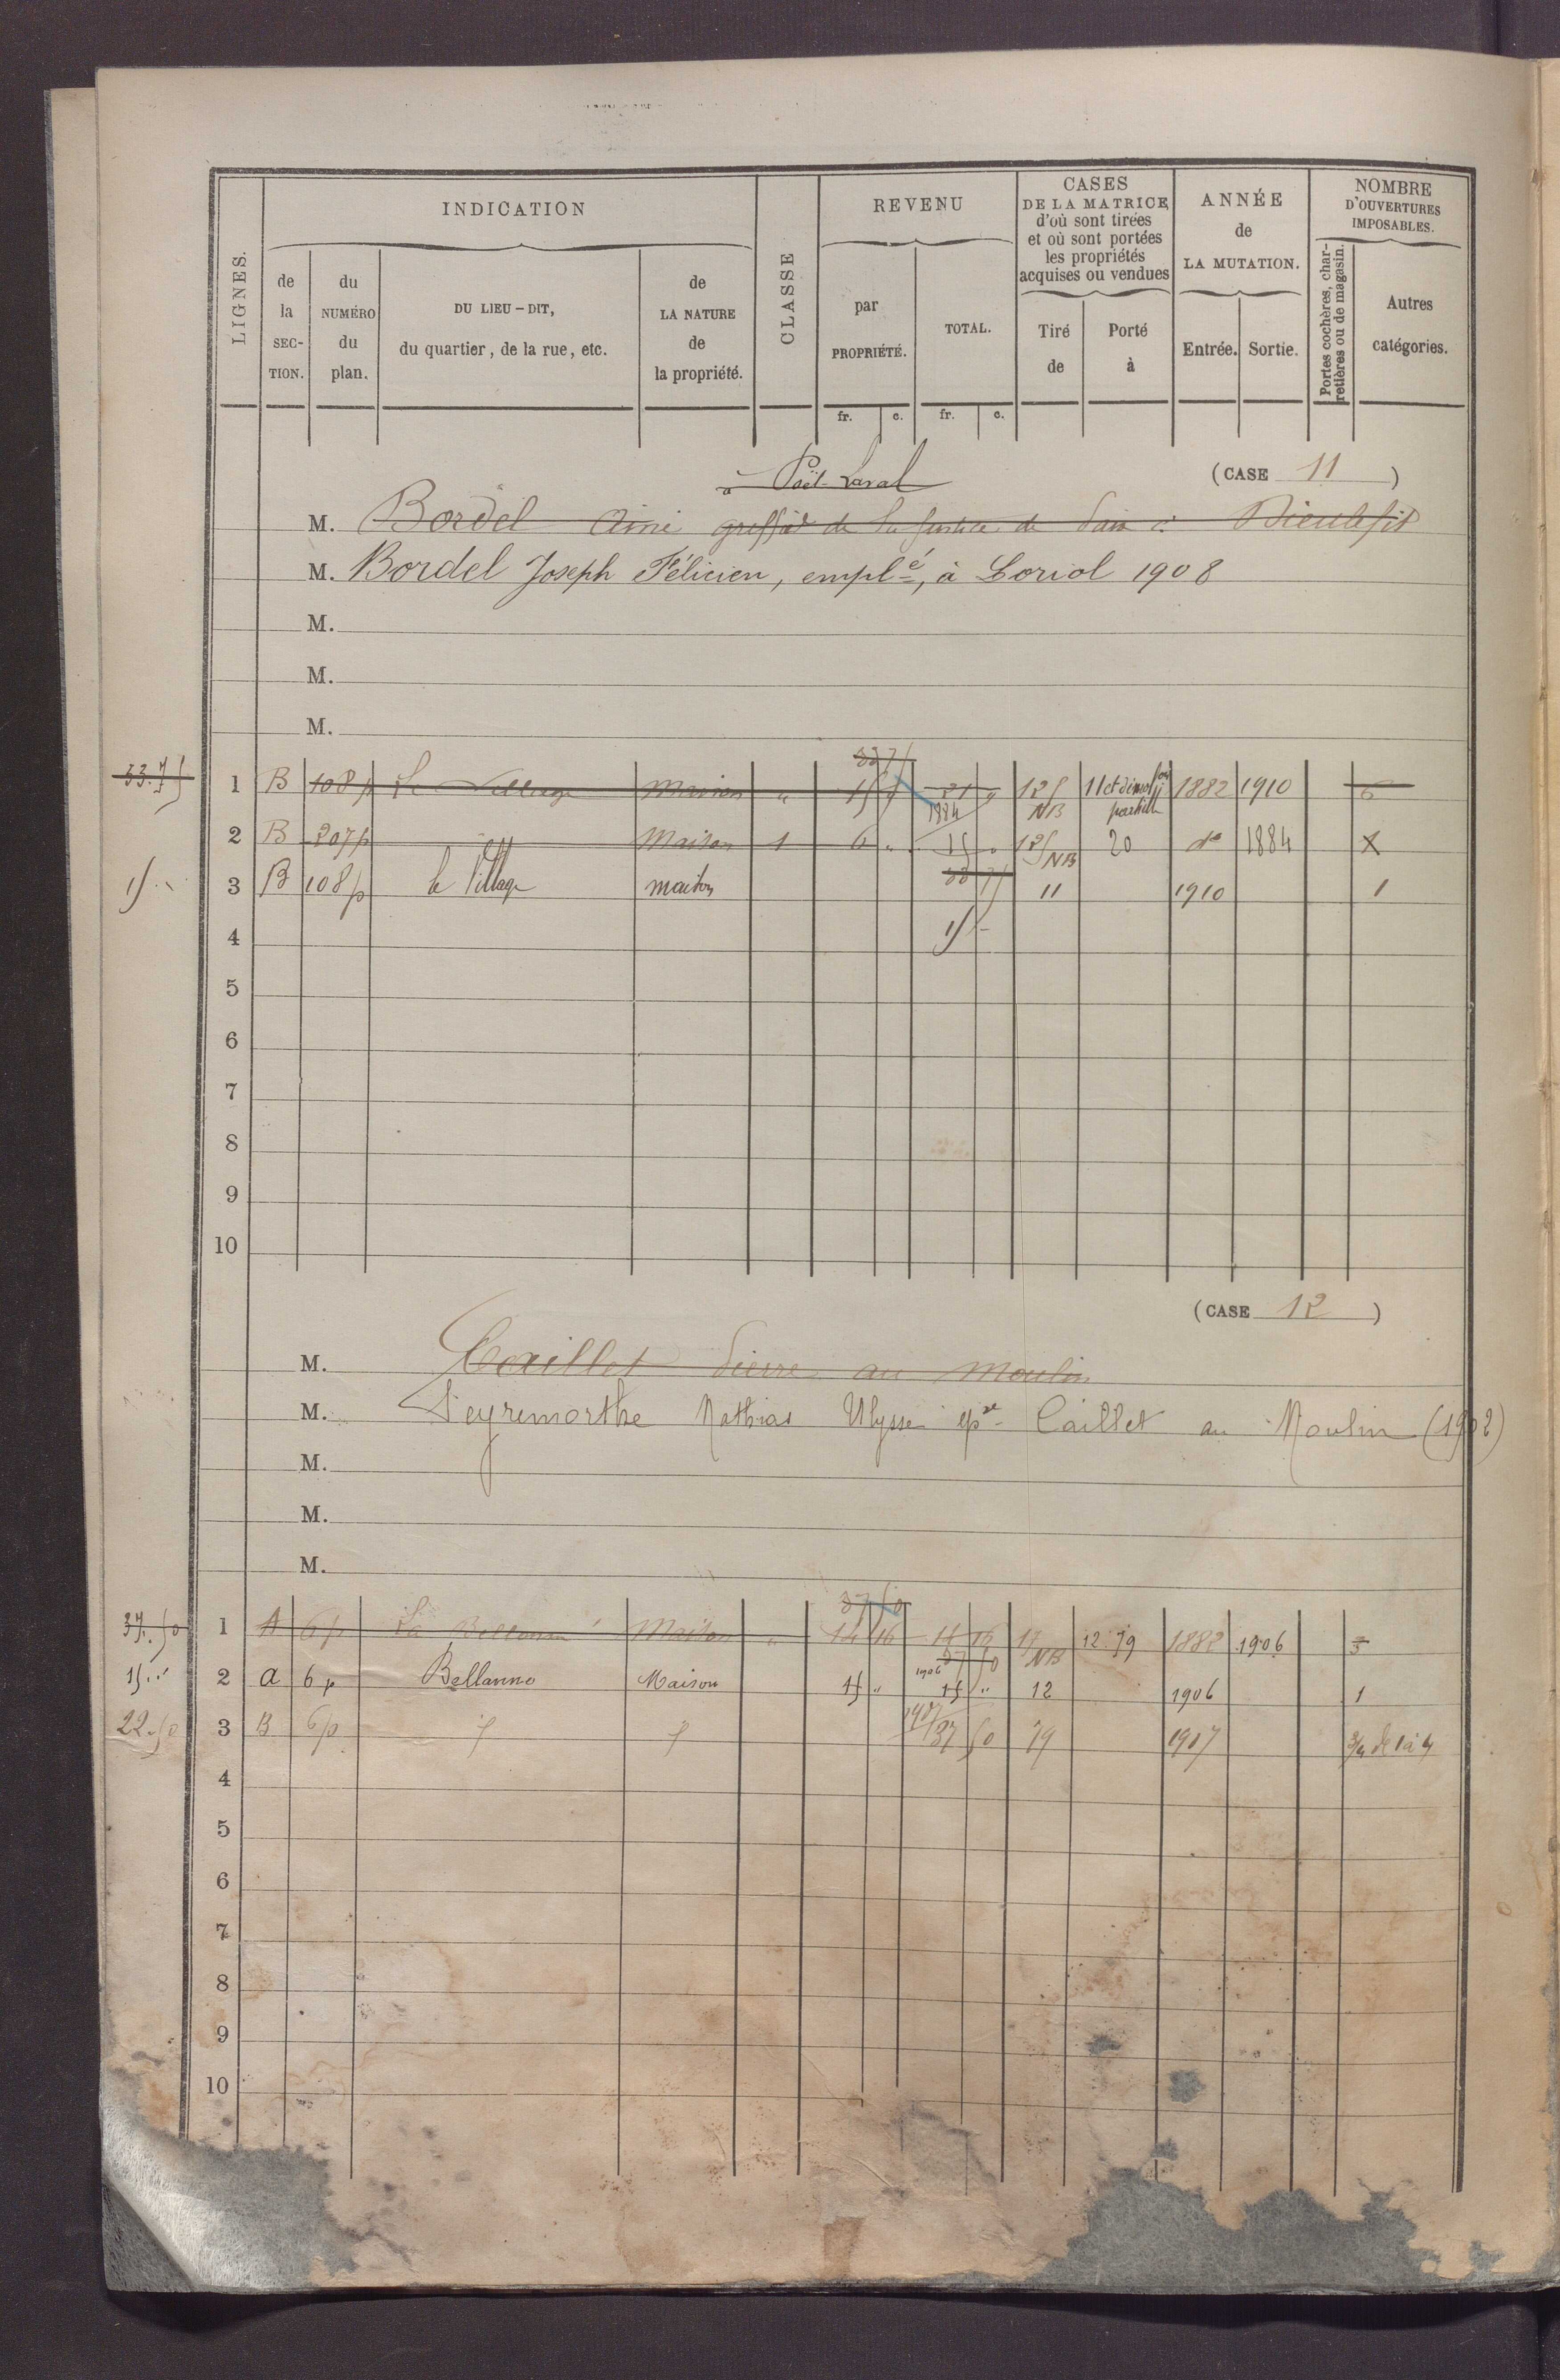 LIGNES.
INDICATION
de la SECTION.
du NUMÉRO du plan.
DU LIEU-DIT, du quartier, de la rue, etc.
de LA NATURE de la propriété.
CLASSE
REVENU
par PROPRIÉTÉ.
TOTAL.
fr. c. fr. c.
CASES DE LA MATRICE d'où sont tirées et où sont portées les propriétés acquises ou vendues
Tiré de
Porté à
ANNÉE de LA MUTATION.
Entrée. Sortie.
NOMBRE D'OUVERTURES IMPOSABLES.
Portes cochères, charretières ou de magasin.
Autres catégories.
à Poët-Laval
(CASE 11)
M. Bordel Aimé greffier de la Justice de Paix à Dieulefit
M. Bordel Joseph Félicien, emplé, à Loriol 1908
M.
M.
M.
33 75
33.75 1 B 108 p Le Village Maison " 15 " 21 " 125 NB 11 et démolion partielle 1882 1910 6
1884
2 B 207 p Maison 1 6 " 15 " 125 NB 20 do 1884 X
33 75
15 " 3 B 108 p le Village maison 11 1910 1
4 15 -
5
6
7
8
9
10
(CASE 12)
M. Caillet Pierre au Moulin
M. Peyremorthe Mathias Ulysse épx Caillet au Moulin (1902)
M.
M.
M.
37 50
37.50 1 A 6 p La Bellanne Maison " 14 16 14 16 17 NB 12.79 1882 1906 3
37 50
15 " 2 a 6 p Bellanne Maison 15 " 1906 15 " 12 1906 1
22.50 3 B 6 p 1907 37 50 79 1907 3/4 de 1 à 4
4
5
6
7
8
9
10